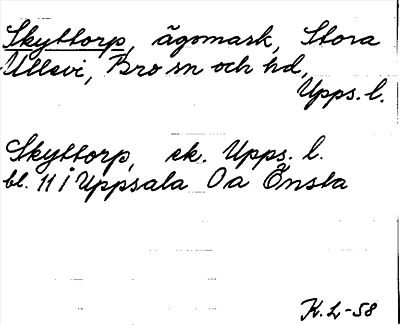 Skyttorp, ägomark, Stora
Ullevi, Bro sn och hd,
Upps. l.
Skyttorp, ek. Upps. l.
bl. 11 i Uppsala Oa Önsta
K. L-58